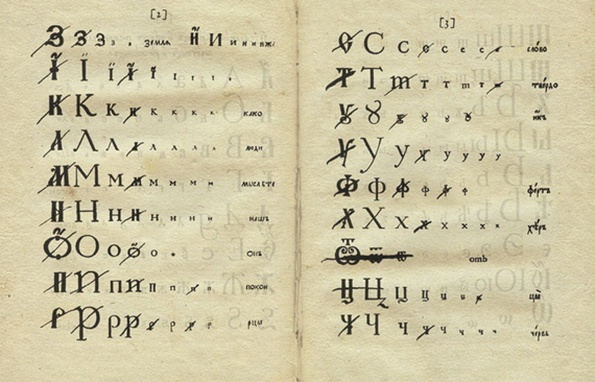 [2]
З З З з з з земля Й И и и и иже
Ї Ї ї ї ї і і і і
К К к к к к к к како
Л Л л л л л л л люди
М М м м м м м м мыслѣте
Н Н н н н н н н нашъ
Ѻ О о о ѻ о о онъ
П П п п п п п п покои
Р Р р р р р р р рцы
[3]
С С С с с с с с слово
Т Т т т т т т т твердо
Ꙋ Ꙋ ꙋ ꙋ ꙋ ꙋ ꙋ икъ
У У у у у у у у
Ф ф ф ф ф ф фертъ
Х Х х х х х х х хѣръ
Ѿ ѿ ѿ отъ
Ц Ц ц ц ц ц ц цы
Ч Ч ч ч ч ч ч червь